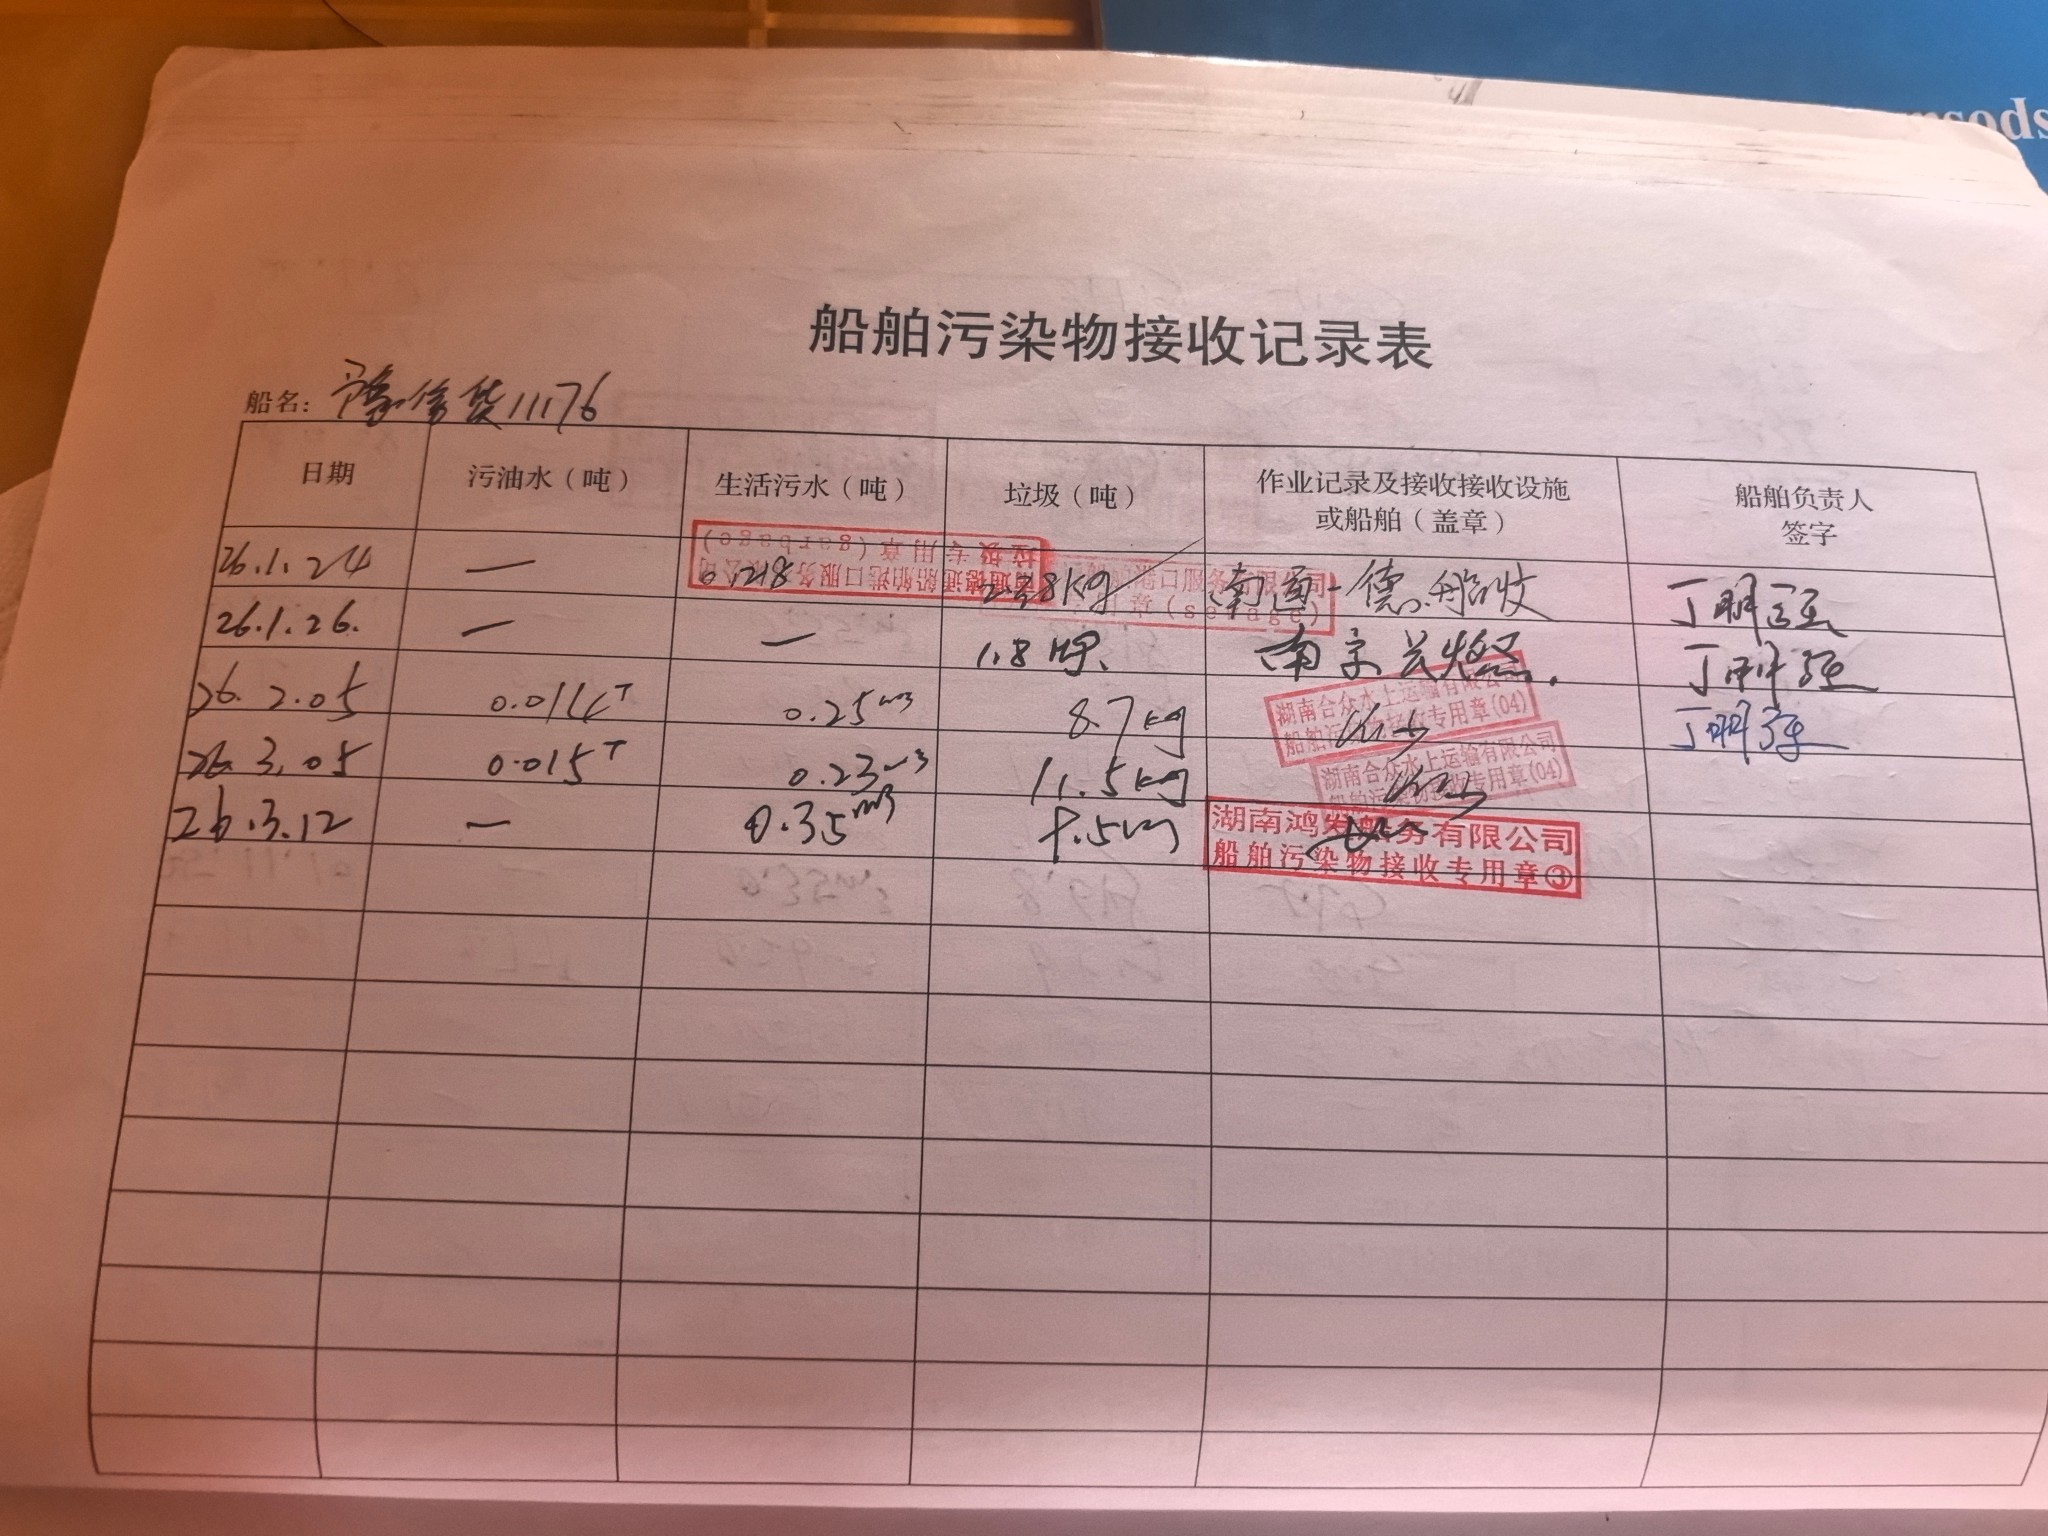 rsods
船舶污染物接收记录表
船名: 豫信货11176
日期 污油水（吨） 生活污水（吨） 垃圾（吨） 作业记录及接收接收设施或船舶（盖章） 船舶负责人签字
26.1.24 — 0.218 KG 南通一德船收 丁明强
垃圾专用章(garbage)
26.1.26. — — 1.8吨. 南京 丁明强
26.2.05 T 0.25m3 8.7kg 丁明强
湖南合众水上运输有限公司
船舶污染物接收专用章(04)
26.3.05 0.015T 0.23m3 11.5kg
湖南合众水上运输有限公司
船舶污染物接收专用章(04)
26.3.12 — 0.35m3
湖南鸿发船务有限公司
船舶污染物接收专用章③